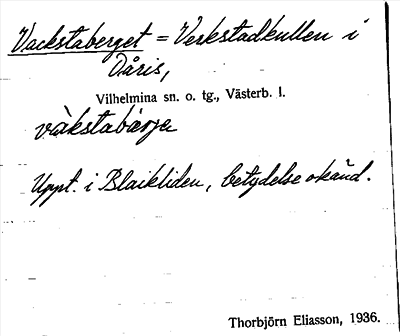 Vackstaberget = Verkstadkullen i
Dåris,
Vilhelmina sn. o. tg., Västerb. l.
vàkstabärje
Uppt. i Blaikliden, betydelse okänd.
Thorbjörn Eliasson, 1936.